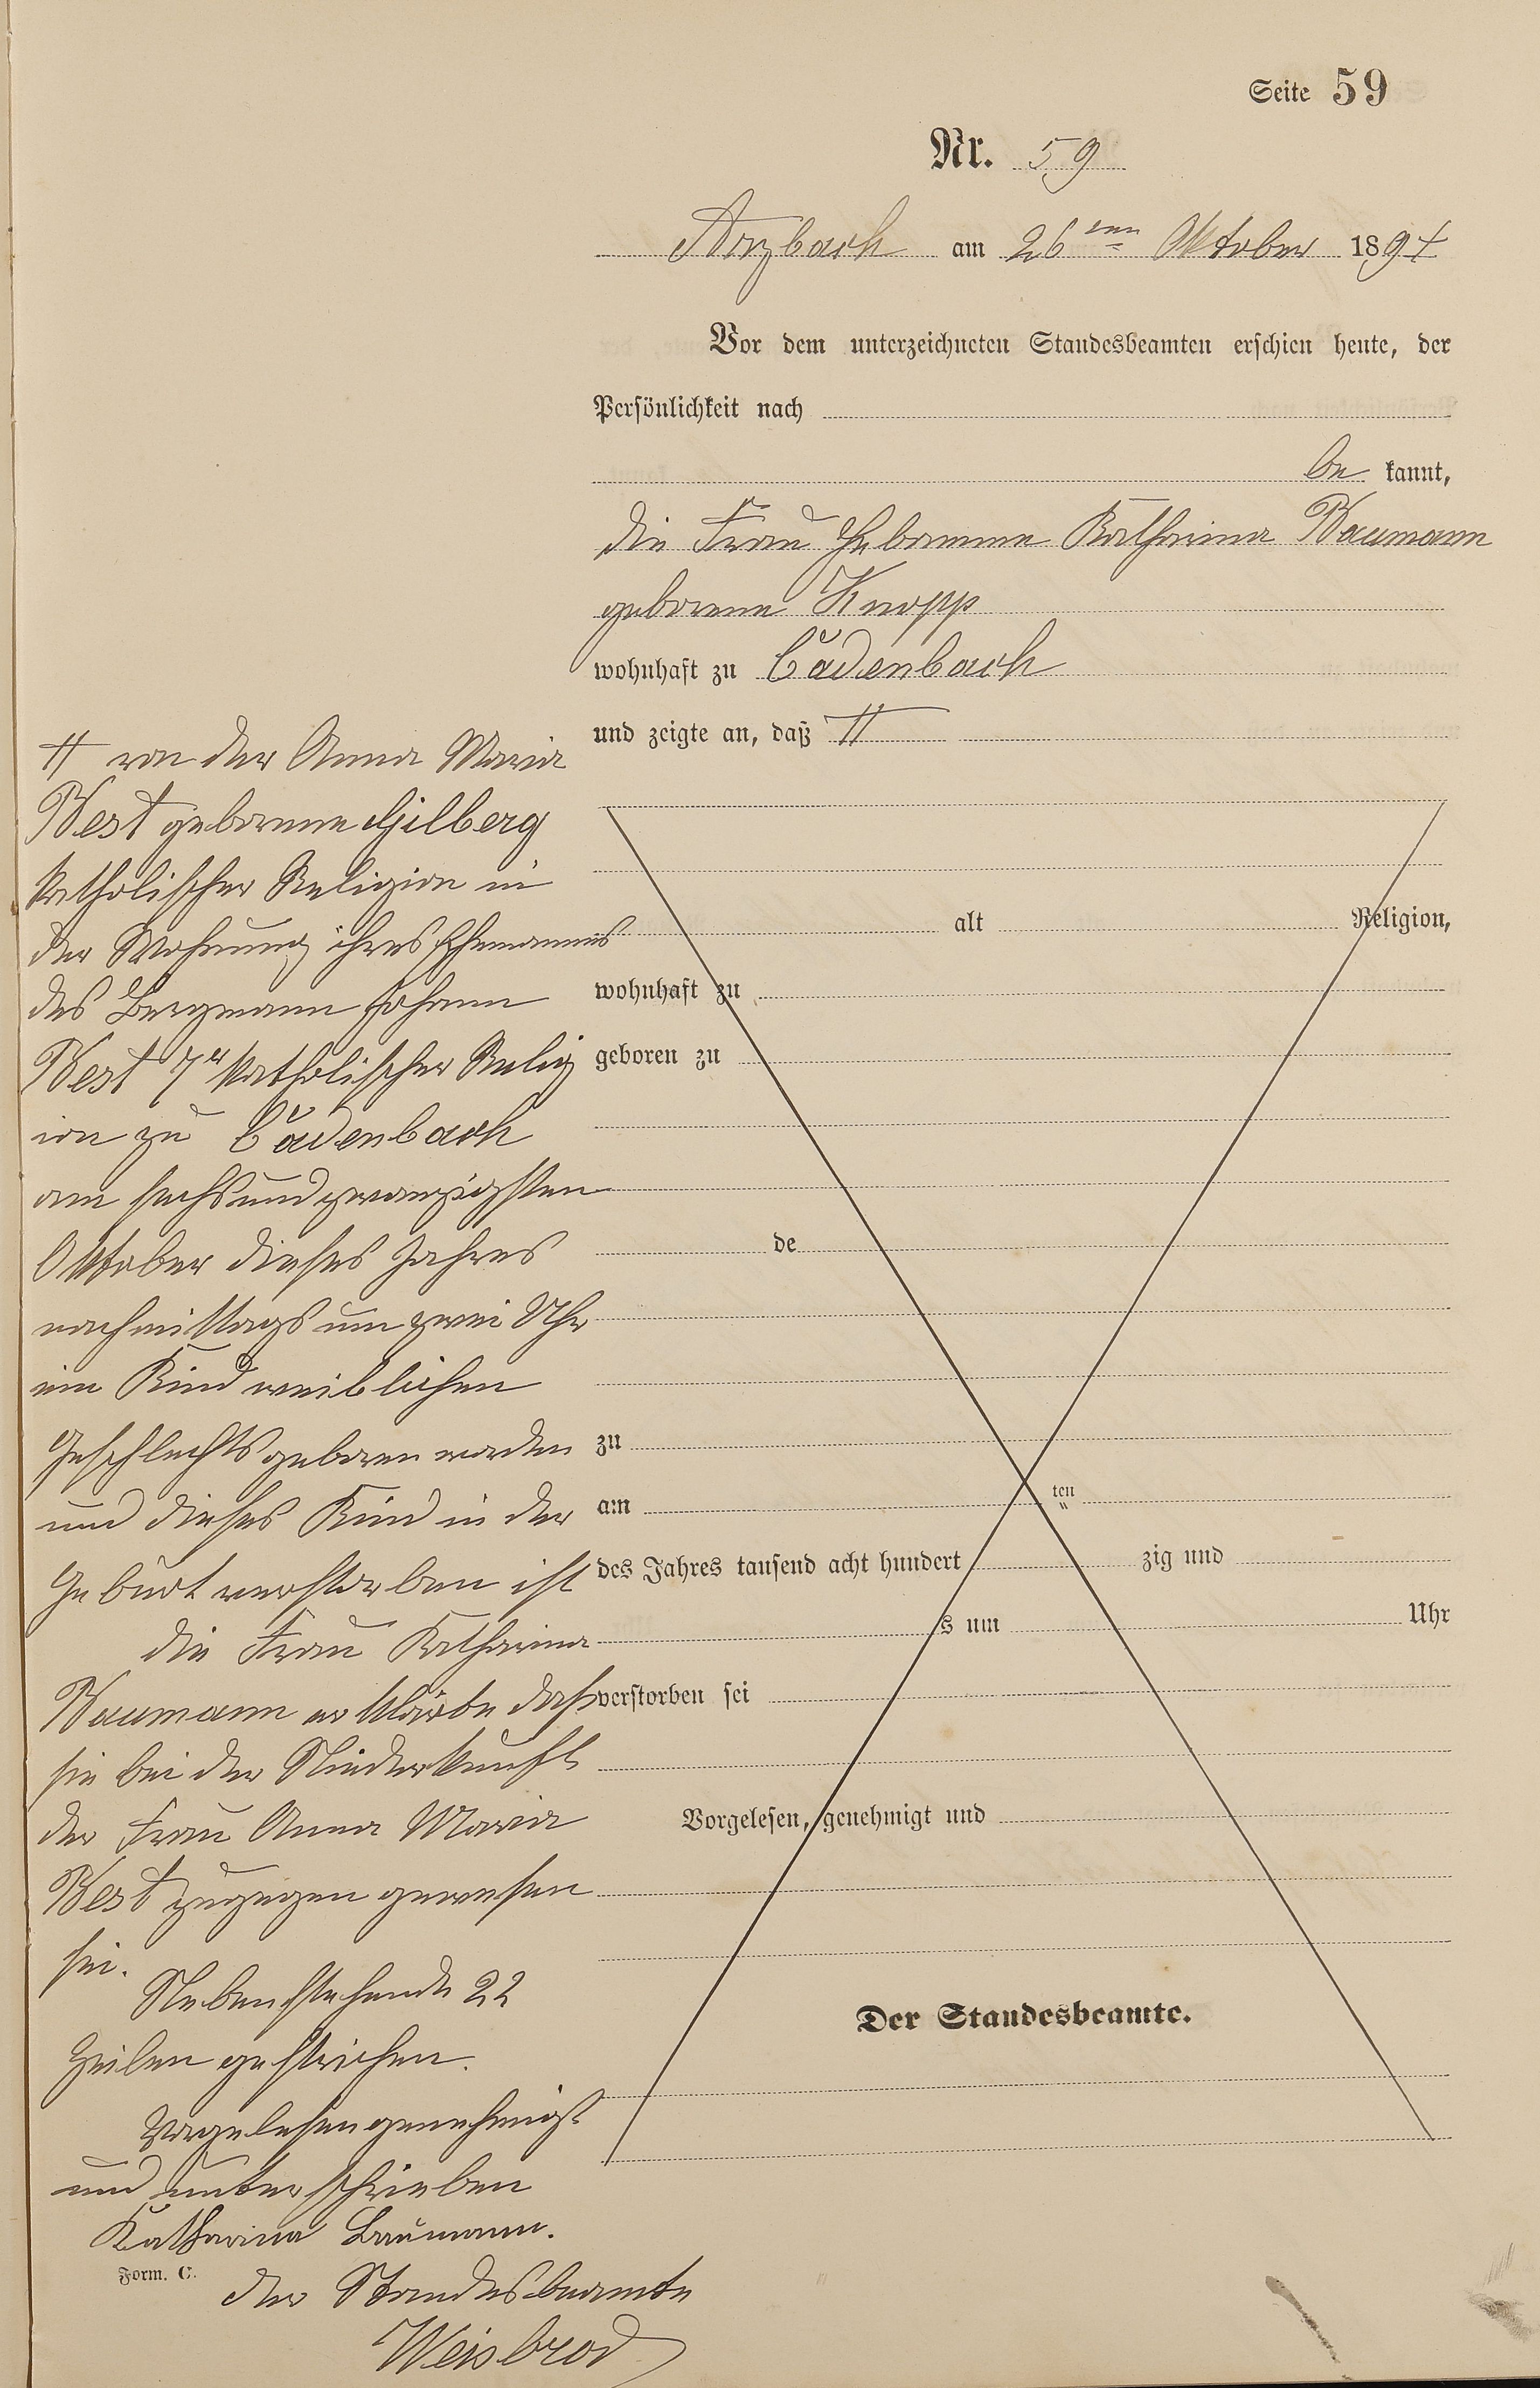 Seite 59
Nr. 59
Arzbach am 26ten Oktober 1894
Vor dem unterzeichneten Standesbeamten erschien heute, der
Persönlichkeit nach
be kannt,
die Frau Hebamme Katharina Baumann
geborene Knopp
wohnhaft zu Cadenbach
und zeigte an, daß #
# von der Anna Maria
Best geborene Hilberg
katholischer Religion in
der Wohnung ihres Ehemannes
des Bergmann Johann
Best 7r katholischer Relig
ion zu Cadenbach
am sechsundzwanzigsten
Oktober dieses Jahres
nachmittags um zwei Uhr
ein Kind weiblichen
Geschlechts geboren worden
und dieses Kind in der
Geburt verstorben ist
die Frau Katharina
Baumann erklärte daß
sie bei der Niederkunft
der Frau Anna Maria
Best zugegen gewesen
sei.
Nebenstehende 22
Zeilen gestrichen.
Vorgelesen genehmigt
und unterschrieben
Katharina Baumann.
Der Standesbeamte
Weisbrod
alt Religion,
wohnhaft zu
geboren zu
de
zu
am ten
des Jahres tausend acht hundert zig und
s um Uhr
verstorben sei
Vorgelesen, genehmigt und
Der Standesbeamte.
Form. C.